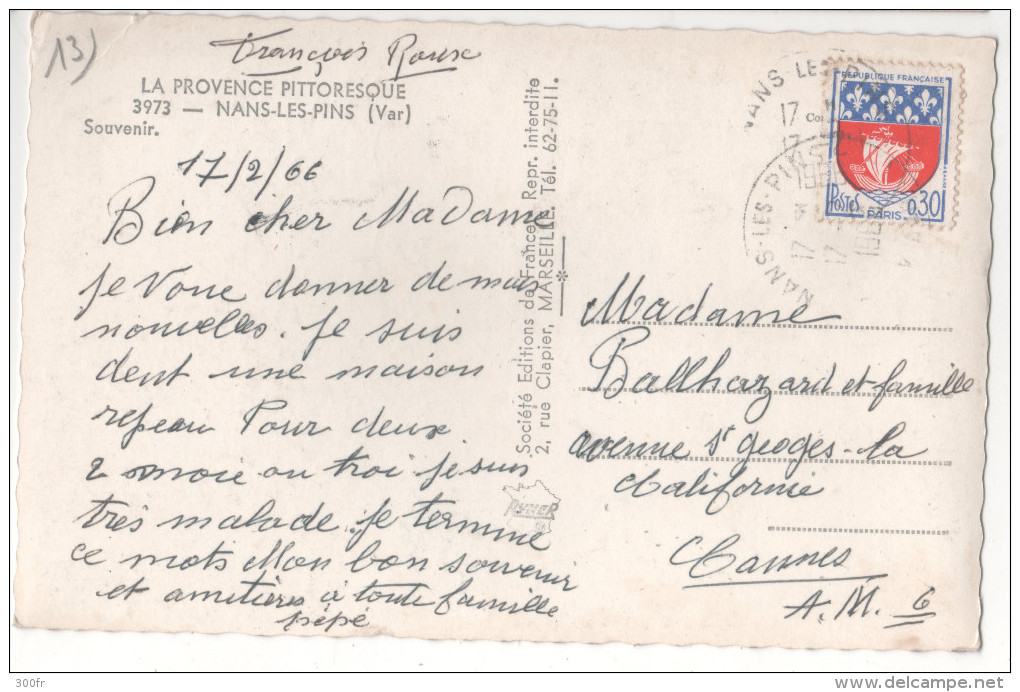 13)
François Roux
LA PROVENCE PITTORESQUE
3973 — NANS-LES-PINS (Var)
Souvenir.
17/2/66
Bien cher Madame
je Vone donner de mais
nouvelles. je suis
dent une maison
repeau Pour deux
2 moie ou troi je suis
très malade. je termine
ce mots Mon bon souvenir
et amitières à toute famille
pépé
Société Editions de France. Repr. interdite
2, rue Clapier, MARSEILLE. Tél. 62-75-11.
RYNER
NANS-LES-PINS
17
1966
REPUBLIQUE FRANÇAISE
POSTES
PARIS
0,30
Madame
Ballhazard et famille
avenue St geoges-la
Californie
Cannes
A.M. 6
300fr
delcampe.net